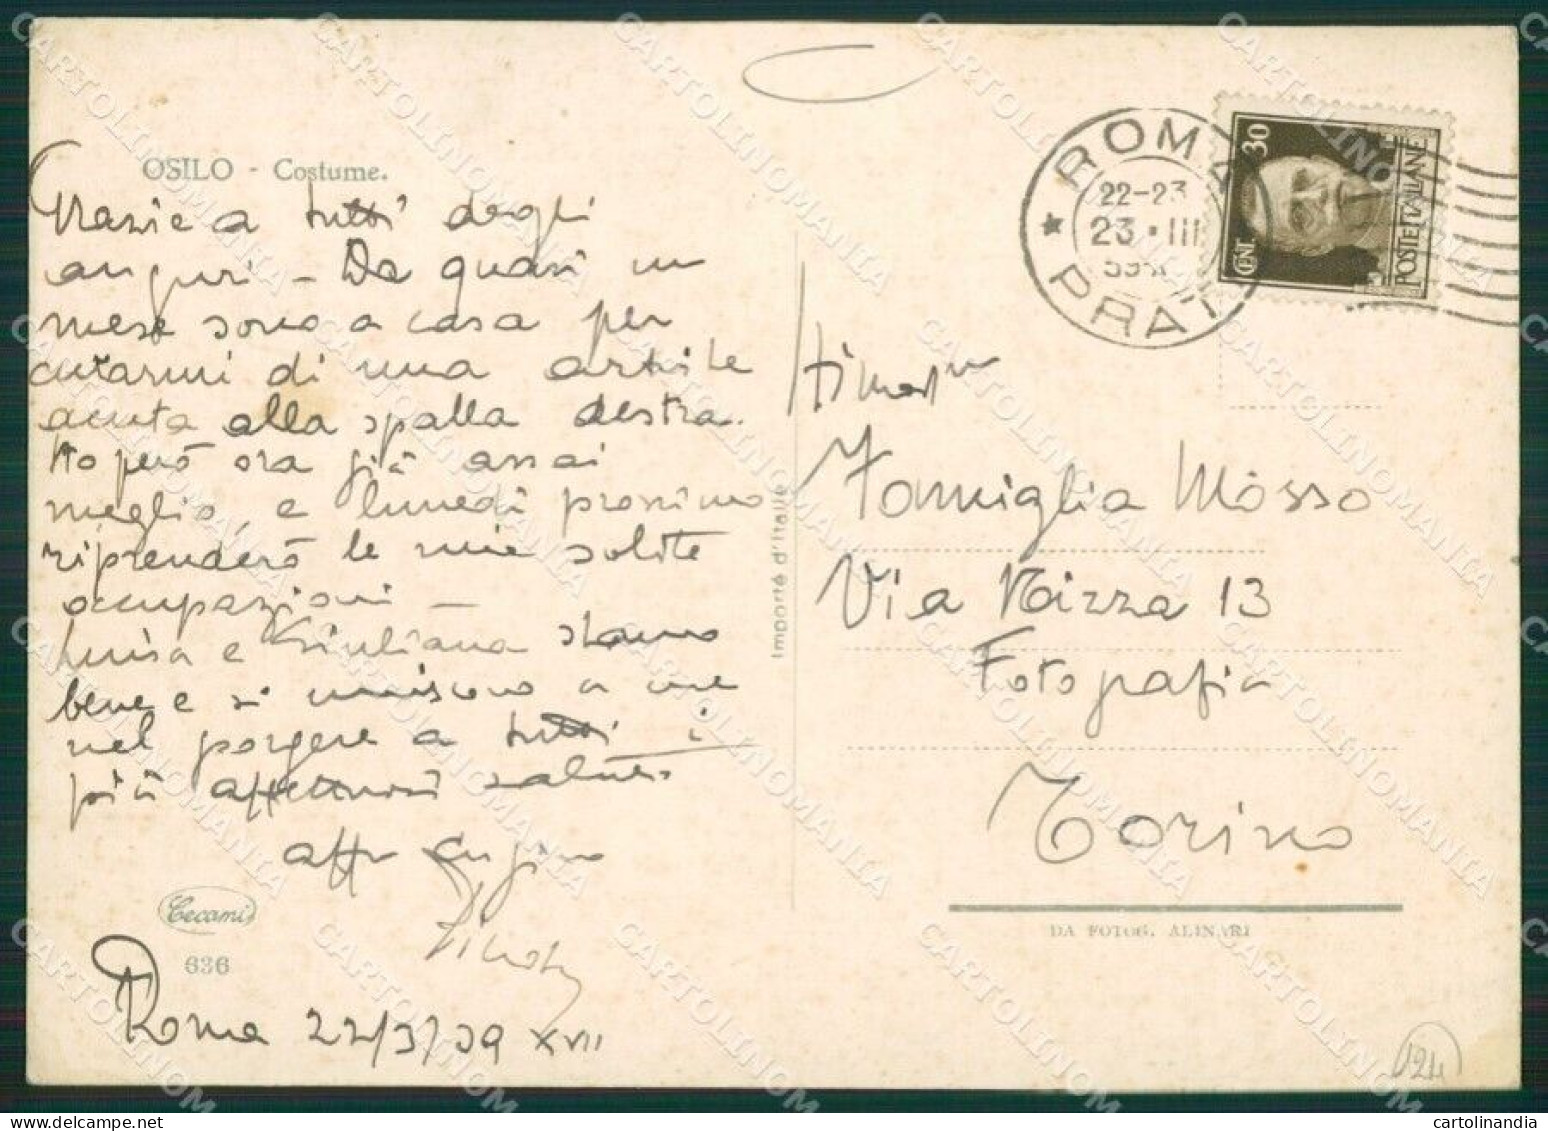 OSILO - Costume.
Grazie a tutti degli
auguri - Da quasi un
mese sono a casa per
curarmi di una artrite
acuta alla spalla destra.
Sto però ora già assai
meglio, e lunedì prossimo
riprenderò le mie solite
occupazioni -
Luisa e Giuliana stanno
bene e si uniscono a me
nel porgere a tutti i
più affettuosi saluti
aff
Cecami
636
Roma 22/3/39 XVII
Importé d'Italie
ROMA
22-23
23 • III
PRATI
CENT. 30
POSTE ITALIANE
Famiglia Mosso
Via Nizza 13
Fotografia
Torino
DA FOTOG. ALINARI
124
CARTOLINOMANIA
cartolinandia